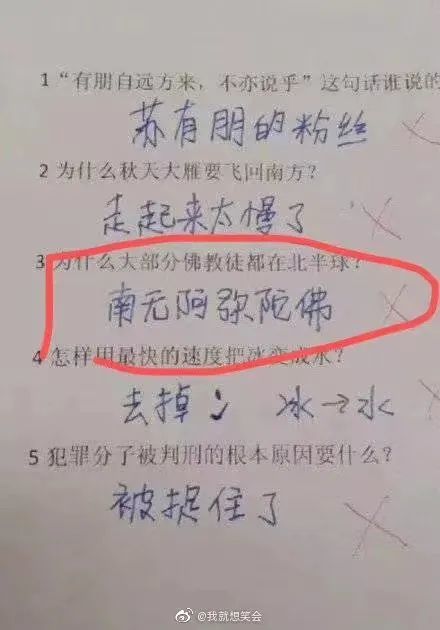 1 “有朋自远方来，不亦说乎”这句话谁说的
苏有朋的粉丝
2 为什么秋天大雁要飞回南方？
走起来太慢了
3 为什么大部分佛教徒都在北半球？
南无阿弥陀佛
4 怎样用最快的速度把冰变成水？
去掉冫 冰→水
5 犯罪分子被判刑的根本原因要什么？
被捉住了
@我就想笑会